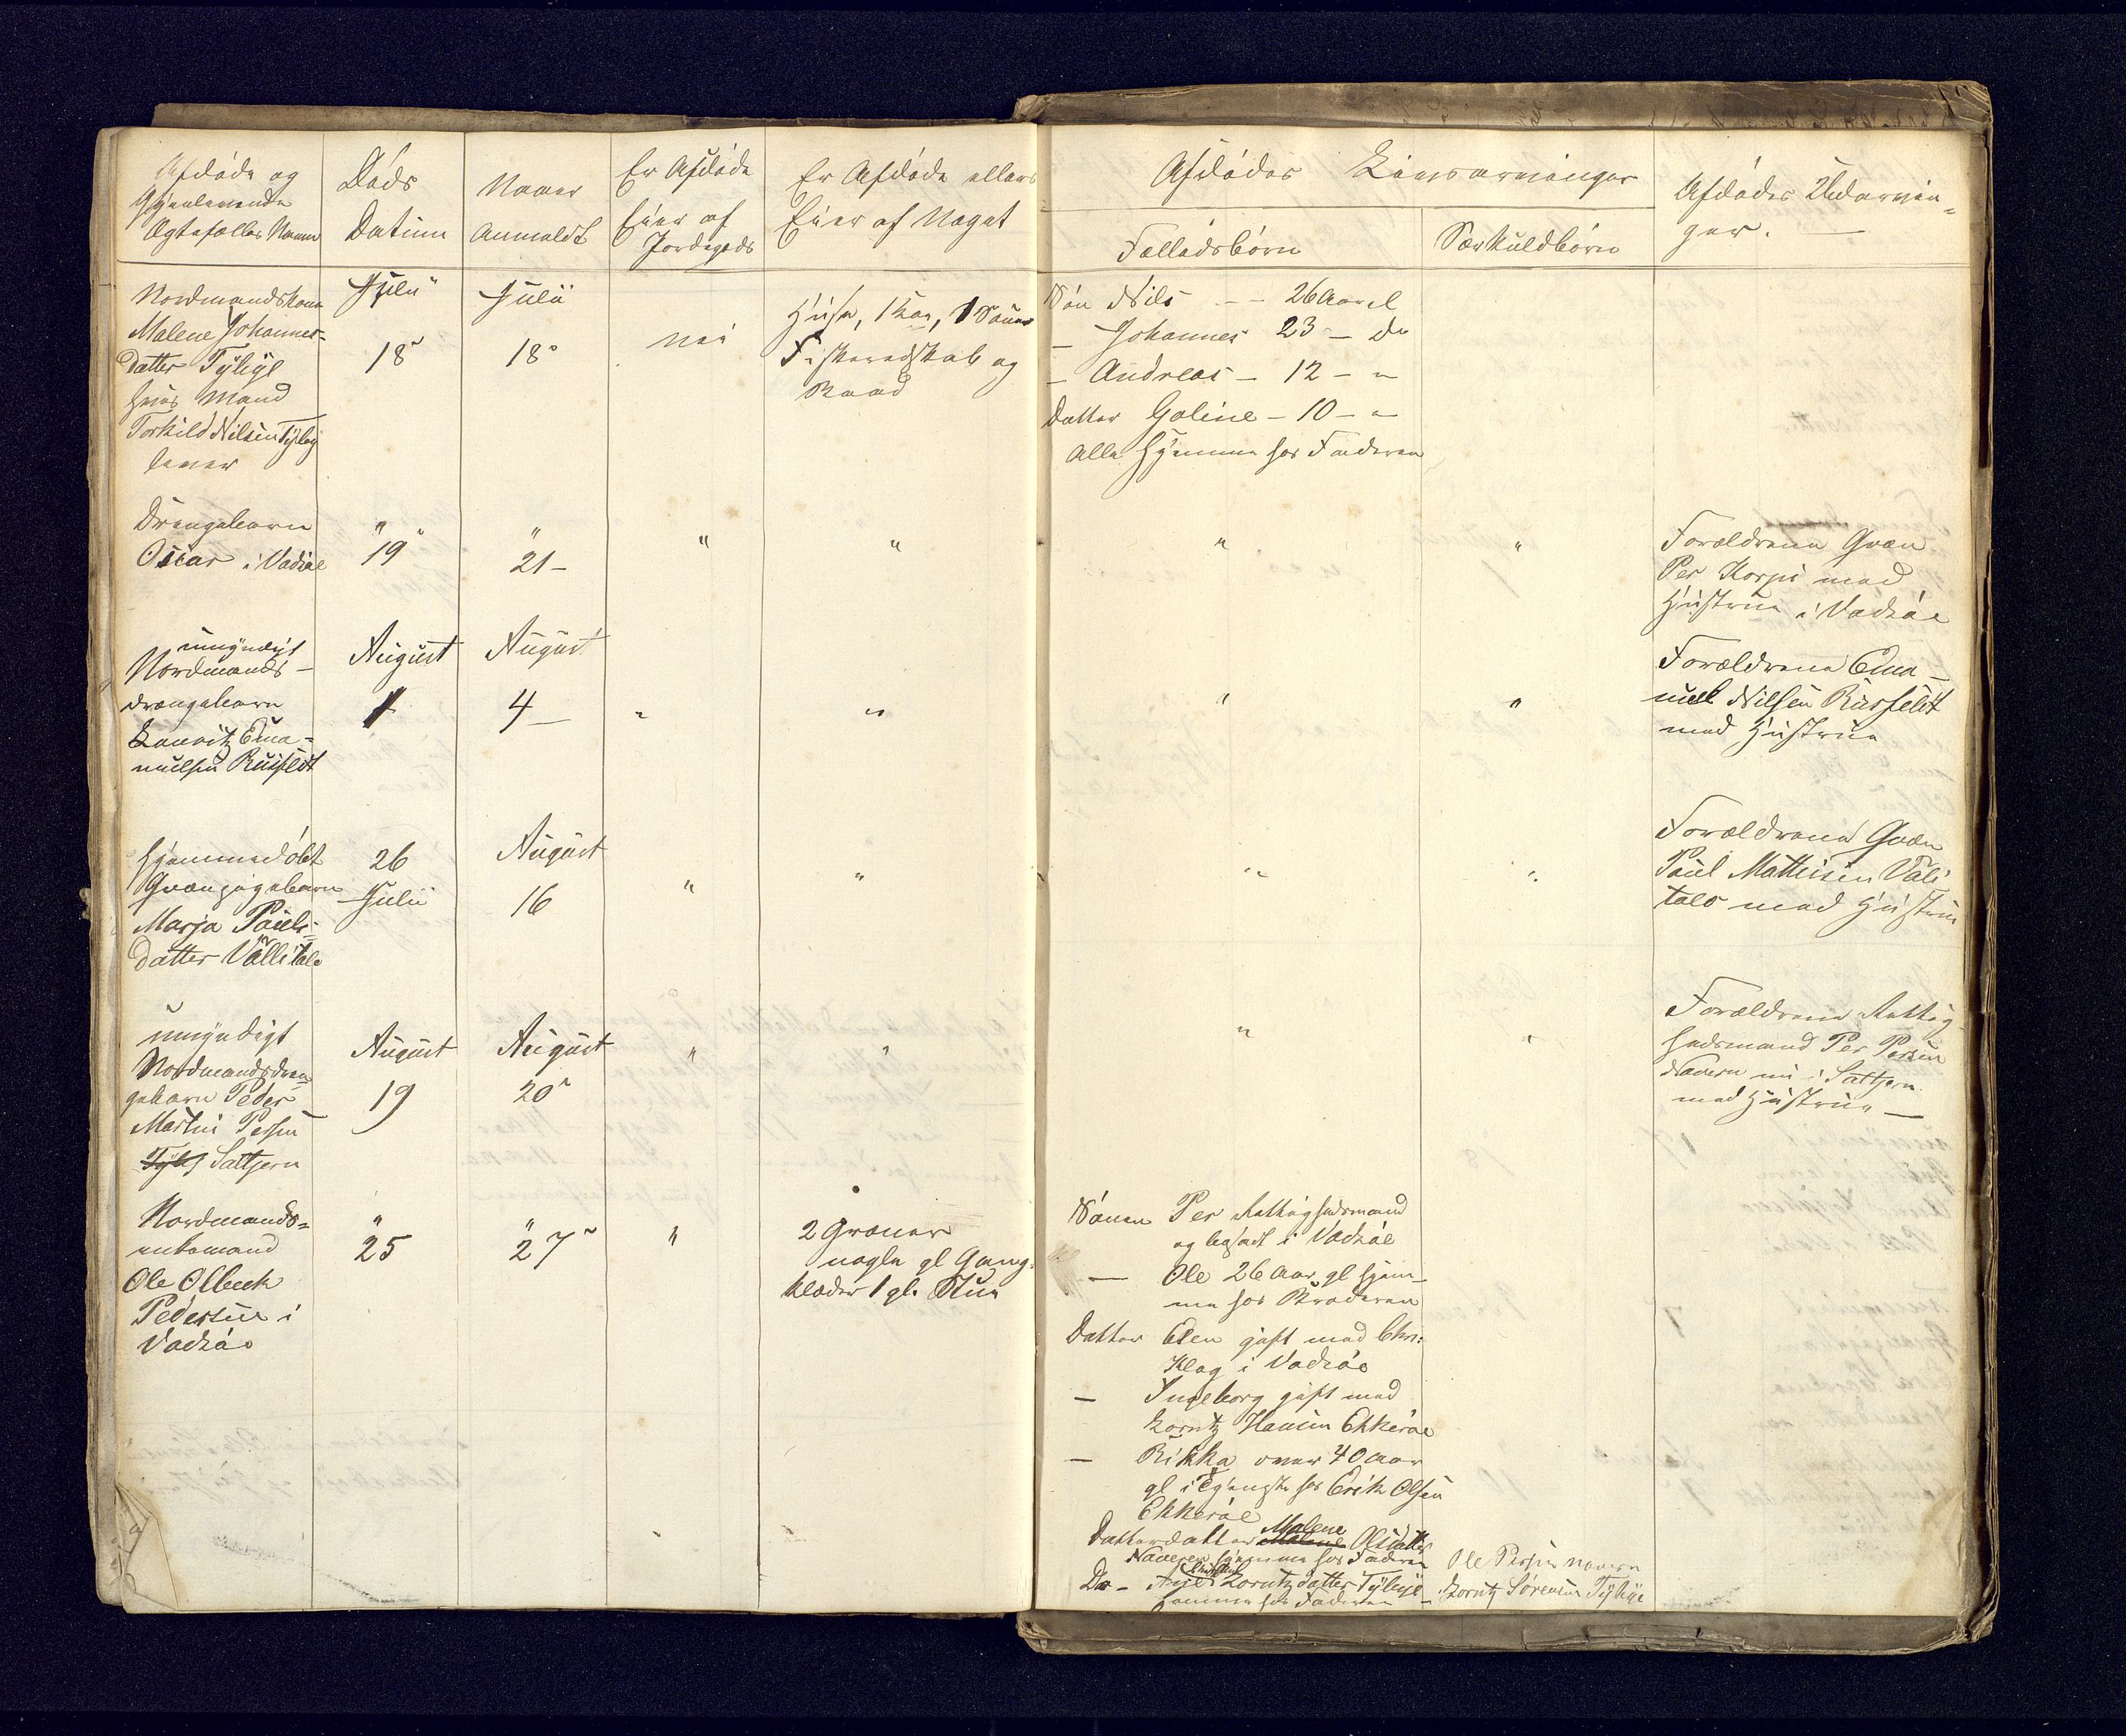 Afdøde og
Gjenlevende
Ægtefælles Navn
Døds
Datum
Naar
Anmeldt
Er Afdøde
Eier af
Jordegods
Er Afdøde ellers
Eier af Noget
Afdødes Livsarvinger
Fælledsbørn
Særkuldbørn
Afdødes Udarvin=
ger.
Nordmandskone
Malene Johannes=
datter Tyligi
hvis Mand
Torkild Nilsen Tyligi
lever
Julii
18
Julii
18
nei
Huse, 1 Koe, 1 Souer
Fiskeredskab og
Baad
Søn Nils - - 26 Aar gl
- Johannes 23 - do
- Andreas - 12 - "
Datter Goline - 10 - "
Alle Hjemme hos Faderen
Drengebarn
Oscar i Vadsøe
" 
19
"
21 -
"
"
"
"
Forældrene Qvæn
Per Korpi med
Hustrue i Vadsøe
umyndigt
Nordmands-
drengebarn
Lauritz Ema=
nuelsen Rusfeldt
August
1
August
4
"
"
"
"
Forældrene Ema-
nuel Nilsen Rusfeldt
med Hustrue
Hjemmedøbt
Qvænpigebarn
Marja Pouls=
datter Vällitalo
26
Julii
August
16
"
"
"
"
Forældrene Qvæn
Paul Mathisen Väli
talo med Hustrue
umyndigt
Nordmandsdren=
gebarn Peder
Martin Persen
Saltjern
August
19
August
20
"
"
"
"
Forældrene Rettig-
hedsmand Per Persen
Naveren nu i Saltjern
med Hustrue -
Nordmands=
enkemand
Ole Olbeck
Pedersen i
Vadsøe
"
25
"
27
"
2 Græner
nogle gl Gang=
klæder 1 gl. Stue
Sønen Per Rettighedsmand
og bosadt i Vadsøe
- Ole 26 Aar gl hjem-
me hos Broderen
Datter Elen gift med Chr:
Klog i Vadsøe
- Ingeborg gift med
Lorntz Hansen Ekkerøe
- Rikka over 40 Aar
gl i Tjeneste hos Erik Olsen
Ekkerøe
Datterdatter Malene Olsdatter
Naveren hjemme hos Faderen
Ole Persen Naveren
Do - Lorntzdatter Tyligi
hjemme hos Faderen -
Lorntz Sørensen Tyligi